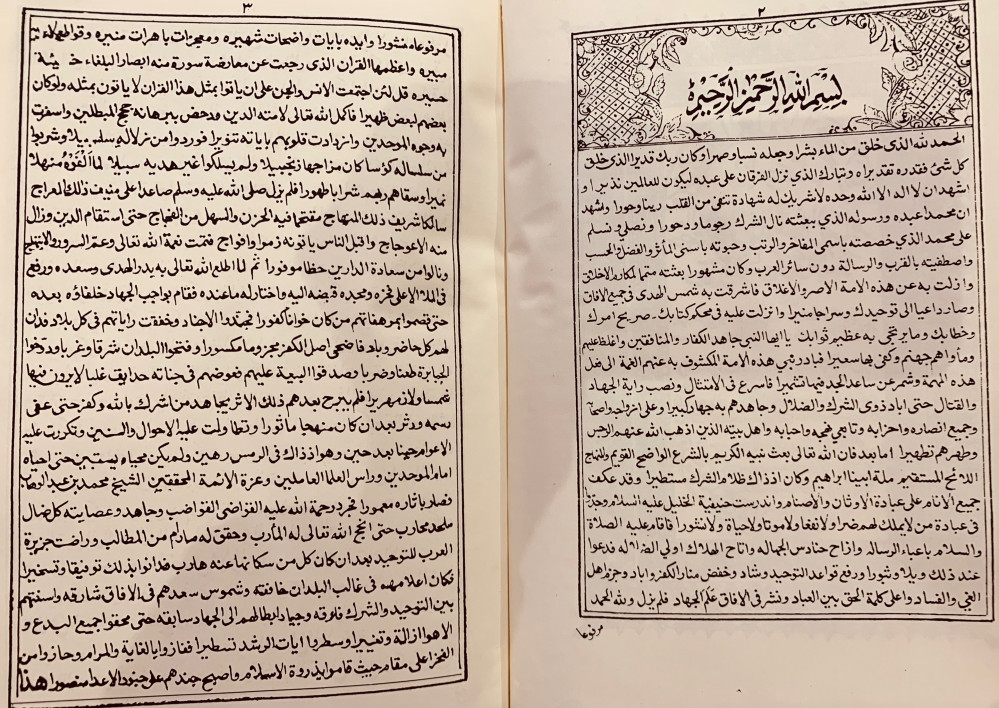 ٢
بسم الله الرحمن الرحيم
الحمد لله الذى خلق من الماء بشرا وجعله نسبا وصهرا وكان ربك قديرا الذى خلق
كل شئ فقدره تقديرا وتبارك الذى نزل الفرقان على عبده ليكون للعالمين نذيرا و
اشهد ان لا اله الا الله وحده لا شريك له شهادة تنفى من القلب رينا وحورا واشهد
ان محمدا عبده ورسوله الذى ببعثته نال الشرك رجوما ودحورا ونصلى ونسلم
على محمد الذى خصصته باسمى المفاخر والرتب وحبوته باسنى المآثر والفضل والحسب
واصطفيته بالقرب والرسالة دون سائر العرب وكان مشهورا بعثته متمما لمكارم الاخلاق
وازلت به عن هذه الامة الاصر والاغلاق فاشرقت به شمس الهدى فى جميع الافاق
وصار داعيا الى توحيدك وسراجا منيرا وانزلت عليه فى محكم كتابك صريح امرك
وخطابك وما يرتجى به عظيم ثوابك يا ايها النبى جاهد الكفار والمنافقين واغلظ عليهم
ومأواهم جهنم وكفى بها سعيرا فبادر نبى هذه الامة المكشوف به عنهم الغمة الى فعل
هذه المهمة وشمر عن ساعد الجد فيها تشميرا فاسرع فى الامتثال ونصب راية الجهاد
والقتال حتى اباد ذوى الشرك والضلال وجاهدهم به جهادا كبيرا وعلى ازواجه واصحابه
وجميع انصاره واحزابه وتابعى نهجه واحبابه واهل بيته الذين اذهب الله عنهم الرجس
وطهرهم تطهيرا اما بعد فان الله تعالى بعث نبيه الكريم بالشرع الواضح القويم والمنهاج
اللائح المستقيم ملة ابينا ابراهيم وكان اذ ذاك ظلام الشرك مستطيرا وقد عكف
جميع الانام على عبادة الاوثان والاصنام واندرست حنيفية الخليل عليه السلام وجدّوا
فى عبادة من لا يملك لهم ضرا ولا نفعا ولا موتا ولا حياة ولا نشورا فاقام عليه الصلاة
والسلام باعباء الرسالة وازاح حنادس الجهالة واتاح الهلاك اولى الضلالة فدعوا
عند ذلك ويلا وثبورا ورفع قواعد التوحيد وشاد وخفض منار الكفر واباد وحزم اهل
الغى والفساد واعلى كلمة الحق بين العباد ونشر فى الافاق علم الجهاد فلم يزل ولله الحمد
مرفوعا
٣
مرفوعا منثورا وايده بايات واضحات شهيره ومعجزات باهرات منيره وقواطع
مبيره واعظمها القران الذى رجعت عن معارضة سورة منه ابصار البلغاء خاسئة
حسيره قل لئن اجتمعت الانس والجن على ان ياتوا بمثل هذا القران لا ياتون بمثله ولو كان
بعضهم لبعض ظهيرا فاكمل الله تعالى لامته الدين ودحض ببرهانه حجج المبطلين واسفرت
به وجوه الموحدين وازدادت قلوبهم باياته تنويرا فوردوا من زلاله سلسبيلا وشربوا
من سلساله كؤسا كان مزاجها زنجبيلا ولم يسلكوا غير هديه سبيلا لما الفوه منهلا
نميرا وسقاهم ربهم شرابا طهورا فلم يزل صلى الله عليه وسلم صاعدا على منيف ذلك المعراج
سالكا شريف ذلك المنهاج مقتحما فيه الحزن والسهل من الفجاج حتى استقام الدين وزال
منه الاعوجاج واقبل الناس ياتونه زمرا وافواج فتمت نعمة الله تعالى وعم السرور والابتهاج
ونالوا من سعادة الدارين حظا موفورا ثم لما اطلع الله تعالى به بدر الهدى وسعده ورفع
فى الملا الاعلى فخره ومجده قبضه اليه واختار له ما عنده فقام بواجب الجهاد خلفاؤه بعده
حتى قصموا بمرهفاتهم من كان خوانا كفورا فجندوا الاجناد وخفقت راياتهم فى كل بلاد فدان
لهم كل حاضر وباد فاضحى اصل الكفر مجزوما مكسورا وفتحوا البلدان شرقا وغربا ودوخوا
الجبابرة طعنا وضربا وصدقوا البيعة عليهم فعوضهم فى جناته حدايق غلبا لا يرون فيها
شمسا ولا زمهريرا فلم يبرح بعدهم ذلك الاثر يجاهد من اشرك بالله وكفر حتى عفى
رسمه ودثر بعد ان كان منهجا ماثورا وتطاولت عليه الاحوال والسنين وتكررت عليه
الاعوام حينا بعد حين وهو اذ ذاك فى الرمس رهين ولم يكن محياه يستبين حتى احياه
امام الموحدين وراس العلما العاملين وعزة الائمة المحققين الشيخ محمد بن عبد الوهاب
فصار باثاره معمورا فجرد رحمة الله عليه القواضى القواضب وجاهد وعصابته كل ضال
ملحد محارب حتى انجح الله تعالى له المآرب وحقق له ما رام من المطالب وراضت جزيرة
العرب للتوحيد بعد ان كان كل من سكانها عنه هارب فدانوا بذلك توفيقا وتسخيرا
فكان اعلامهم فى غالب البلدان خافقة وشموس سعدهم فى الافاق شارقه والسنتهم
بين التوحيد والشرك فارقه وجياد ابطالهم الى الجهاد سابقه حتى محقوا جميع البدع و
الاهوا ازالة وتغييرا وسطروا ايات الرشد تسطيرا ففازوا بالغاية والمرام وحازوا من
الفخر اعلى مقام حيث قاموا بذروة الاسلام واصبح جندهم على جنود الاعدا منصورا هذا